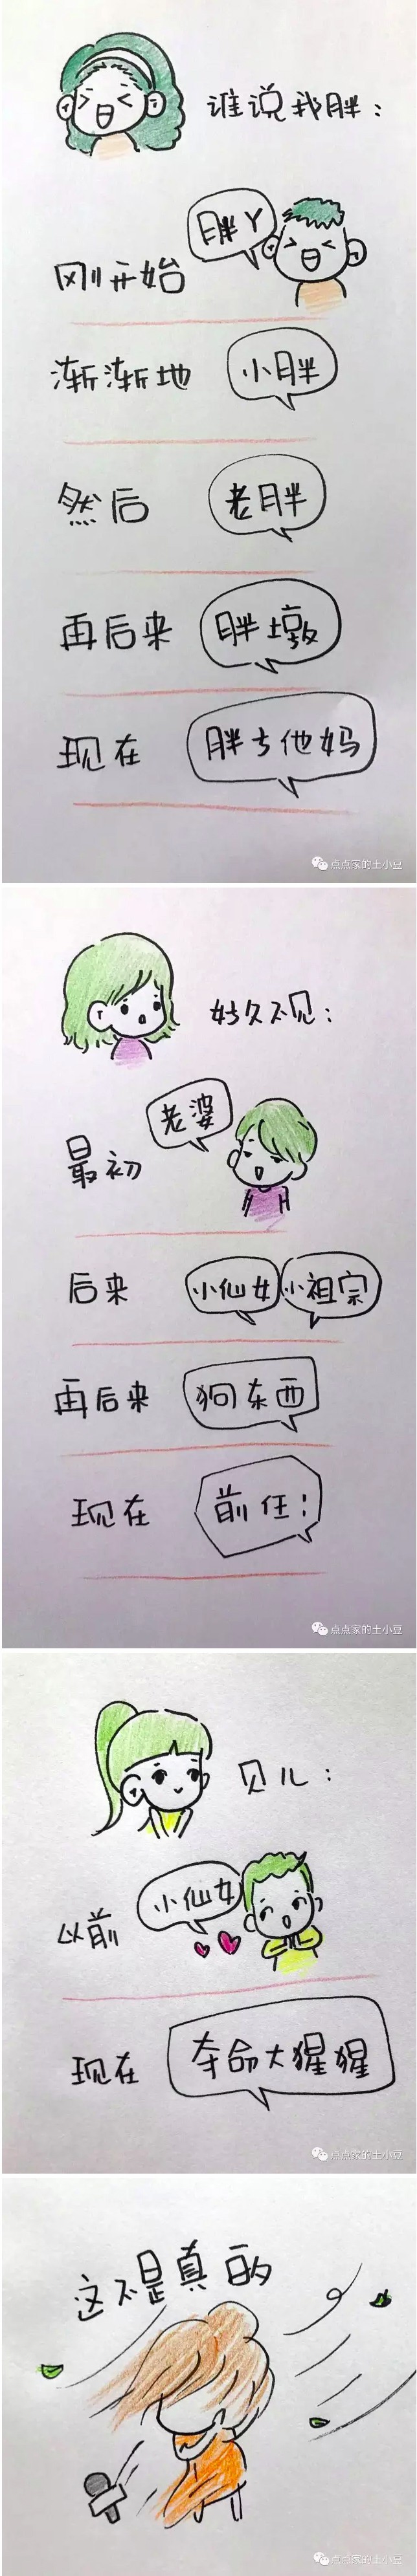 谁说我胖:
胖丫
刚开始
渐渐地 小胖
然后 老胖
再后来 胖墩
现在 胖ち他妈
点点家的土小豆
好久不见:
老婆
最初
后来 小仙女 小祖宗
再后来 狗东西
现在 前任!
点点家的土小豆
贝儿:
小仙女
以前
现在 夺命大猩猩
点点家的土小豆
这不是真的
点点家的土小豆